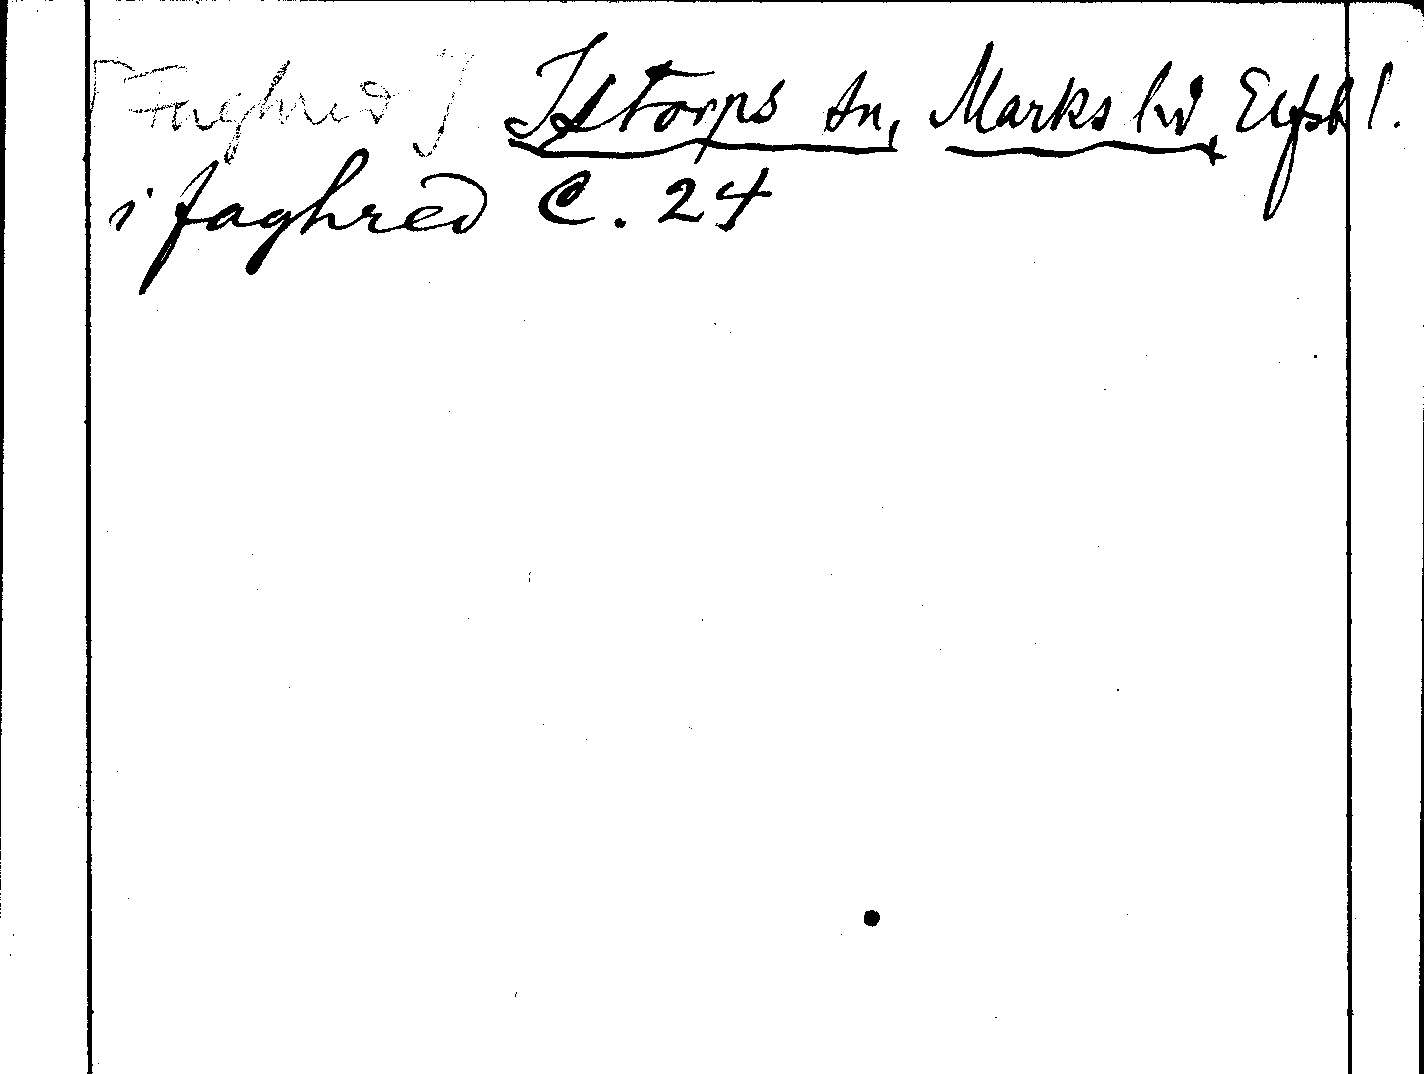 [Faghred] Istorps sn, Marks hd, Elfsb l.
i faghred C. 24